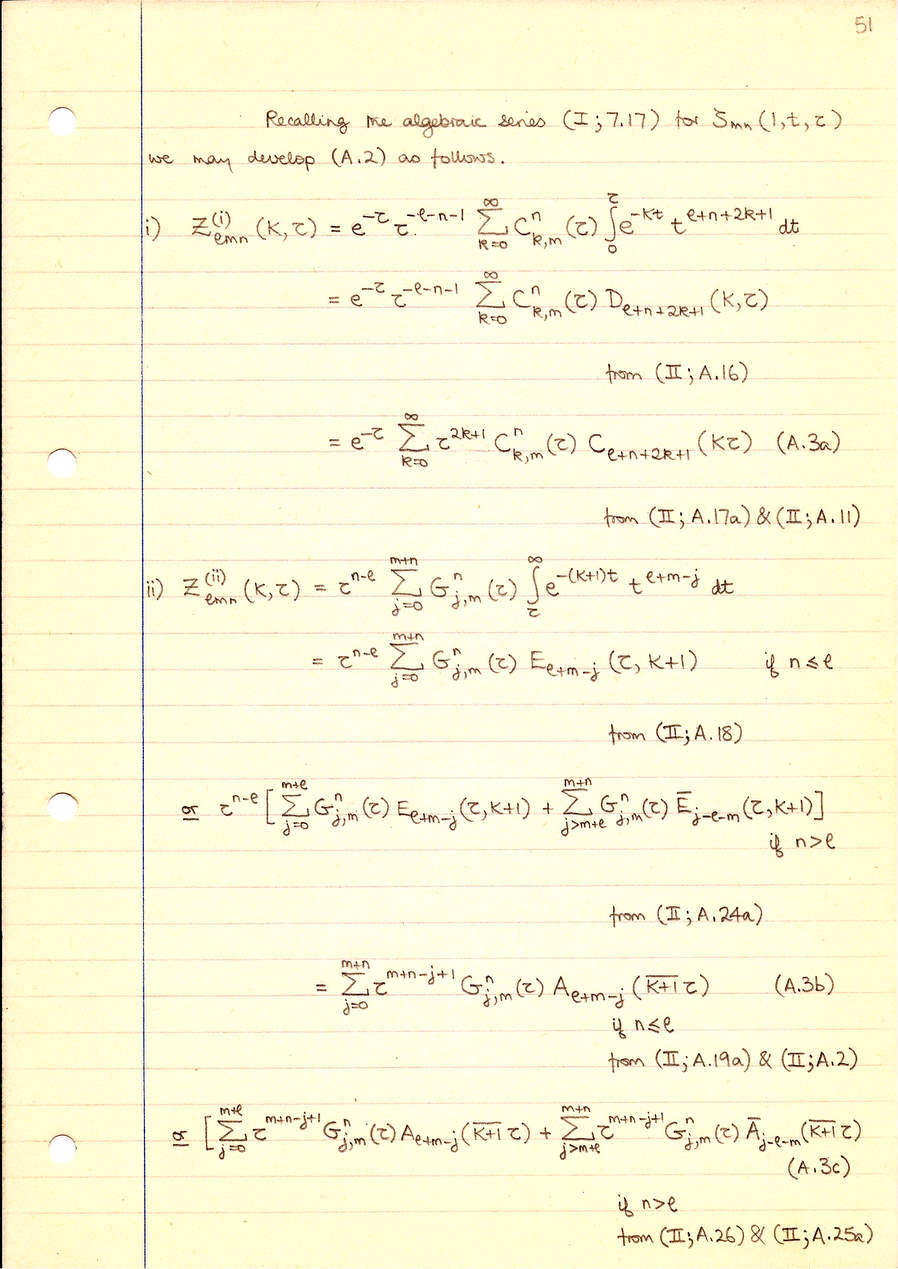 51
Recalling the algebraic series (I; 7.17) for ζₘₙ(1,t,τ)
we may develop (A.2) as follows.
i) Z_{ℓmn}^{(i)}(K,τ) = e^{-τ} τ^{-ℓ-n-1} ∑_{k=0}^{∞} C_{k,m}^{n}(τ) ∫_{0}^{τ} e^{-Kt} t^{ℓ+n+2k+1} dt
= e^{-τ} τ^{-ℓ-n-1} ∑_{k=0}^{∞} C_{k,m}^{n}(τ) D_{ℓ+n+2k+1}(K,τ)
from (II; A.16)
= e^{-τ} ∑_{k=0}^{∞} τ^{2k+1} C_{k,m}^{n}(τ) C_{ℓ+n+2k+1}(Kτ) (A.3a)
from (II; A.17a) & (II; A.11)
ii) Z_{ℓmn}^{(ii)}(K,τ) = τ^{n-ℓ} ∑_{j=0}^{m+n} G_{j,m}^{n}(τ) ∫_{τ}^{∞} e^{-(K+1)t} t^{ℓ+m-j} dt
= τ^{n-ℓ} ∑_{j=0}^{m+n} G_{j,m}^{n}(τ) E_{ℓ+m-j}(τ, K+1) if n ≤ ℓ
from (II; A.18)
or τ^{n-ℓ} [∑_{j=0}^{m+ℓ} G_{j,m}^{n}(τ) E_{ℓ+m-j}(τ,K+1) + ∑_{j>m+ℓ}^{m+n} G_{j,m}^{n}(τ) Ē_{j-ℓ-m}(τ,K+1)]
if n>ℓ
from (II; A.24a)
= ∑_{j=0}^{m+n} τ^{m+n-j+1} G_{j,m}^{n}(τ) A_{ℓ+m-j}(\overline{K+1} τ) (A.3b)
if n≤ℓ
from (II; A.19a) & (II; A.2)
or [∑_{j=0}^{m+ℓ} τ^{m+n-j+1} G_{j,m}^{n}(τ) A_{ℓ+m-j}(\overline{K+1} τ) + ∑_{j>m+ℓ}^{m+n} τ^{m+n-j+1} G_{j,m}^{n}(τ) Ā_{j-ℓ-m}(\overline{K+1} τ)
(A.3c)
if n>ℓ
from (II; A.26) & (II; A.25a)